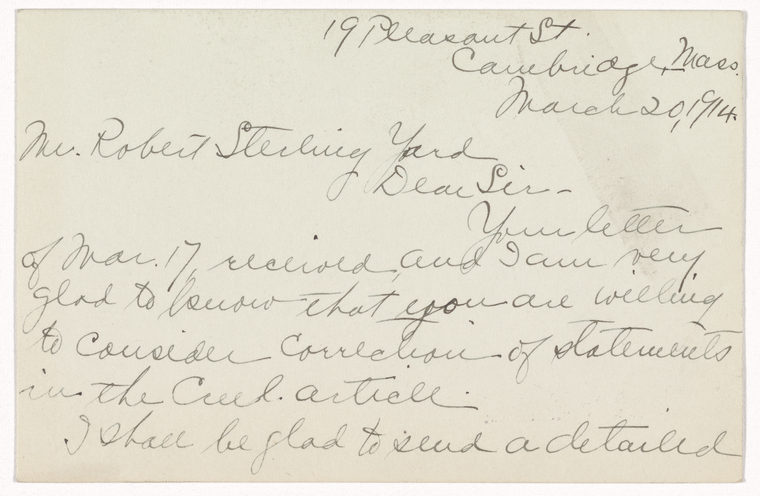 19 Pleasant St.
Cambridge, Mass.
March 20, 1914.
Mr. Robert Sterling Yard
Dear Sir -
Your letter
of Mar. 17, received, and I am very
glad to know that you are willing
to consider correction of statements
in the article.
I shall be glad to send a detailed